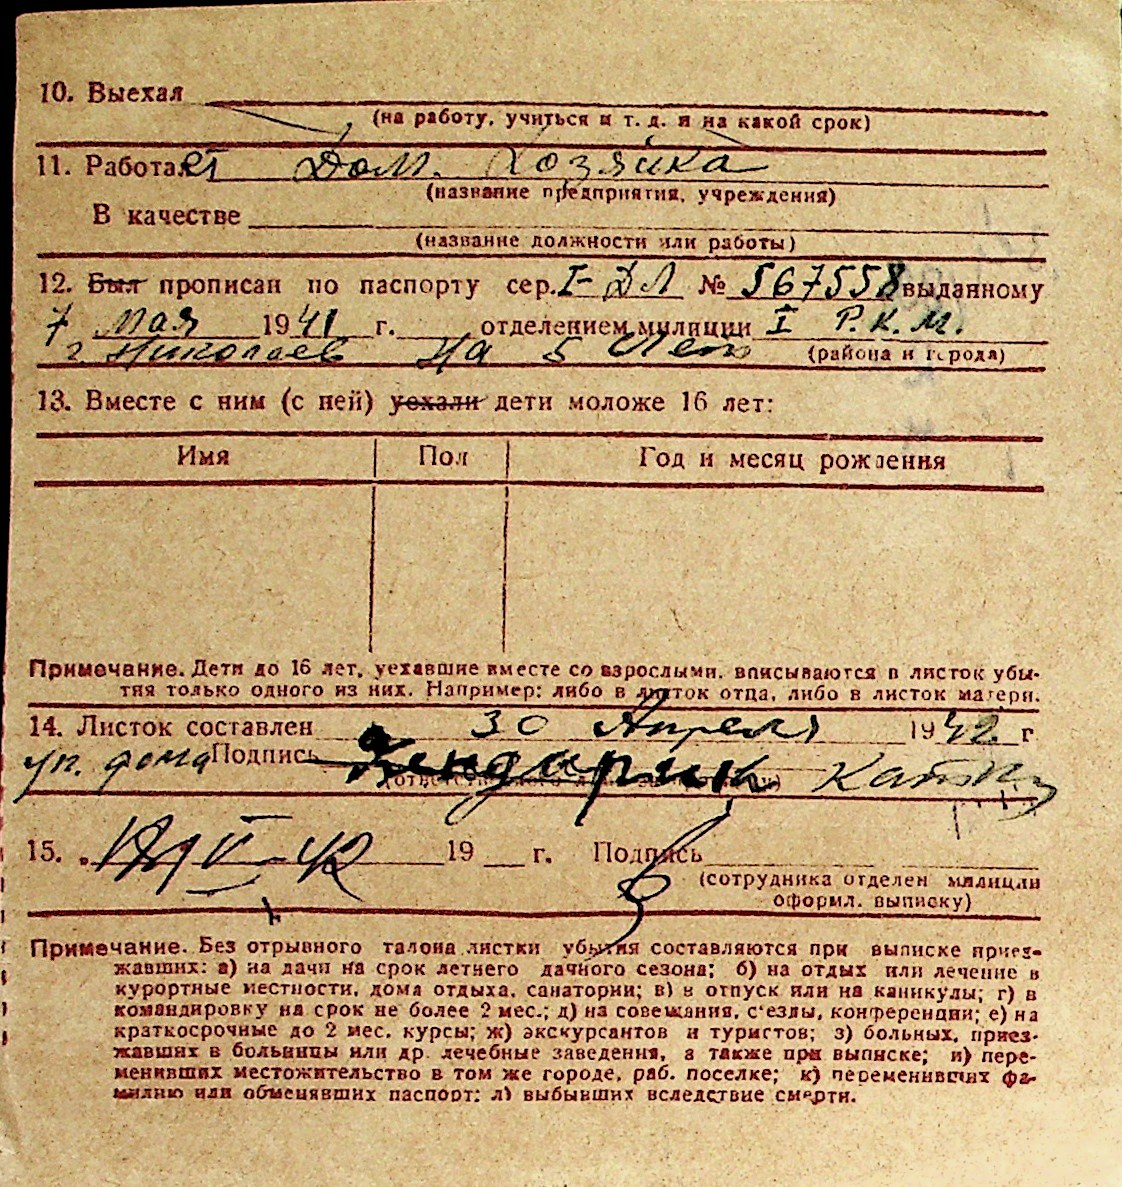 10. Выехал
(на работу, учиться и т. д. и на какой срок)
11. Работает Дом. Хозяйка
(название предприятия, учреждения)
В качестве
(название должности или работы)
12. Был прописан по паспорту сер. I-ДЛ № 567558 выданному
7 мая 1941 г. отделением милиции I Р.К.М.
г. Николаев на 5 лет (района и города)
13. Вместе с ним (с ней) уехали дети моложе 16 лет:
Имя Пол Год и месяц рождения
Примечание. Дети до 16 лет, уехавшие вместе со взрослыми, вписываются в листок убы-
тия только одного из них. Например: либо в листок отца, либо в листок матери.
14. Листок составлен 30 Апреля 1942 г
уп. дома Подпись
15. 19 г. Подпись
(сотрудника отделен милиции
оформл. выписку)
Примечание. Без отрывного талона листки убытия составляются при выписке приез-
жавших: а) на дачи на срок летнего дачного сезона; б) на отдых или лечение в
курортные местности, дома отдыха, санатории; в) в отпуск или на каникулы; г) в
командировку на срок не более 2 мес.; д) на совещания, с'езды, конференции; е) на
краткосрочные до 2 мес. курсы; ж) экскурсантов и туристов; з) больных, приез-
жавших в больницы или др. лечебные заведения, а также при выписке; и) пере-
менивших местожительство в том же городе, раб. поселке; к) переменивших фа-
милию или обменявших паспорт; л) выбывших вследствие смерти.